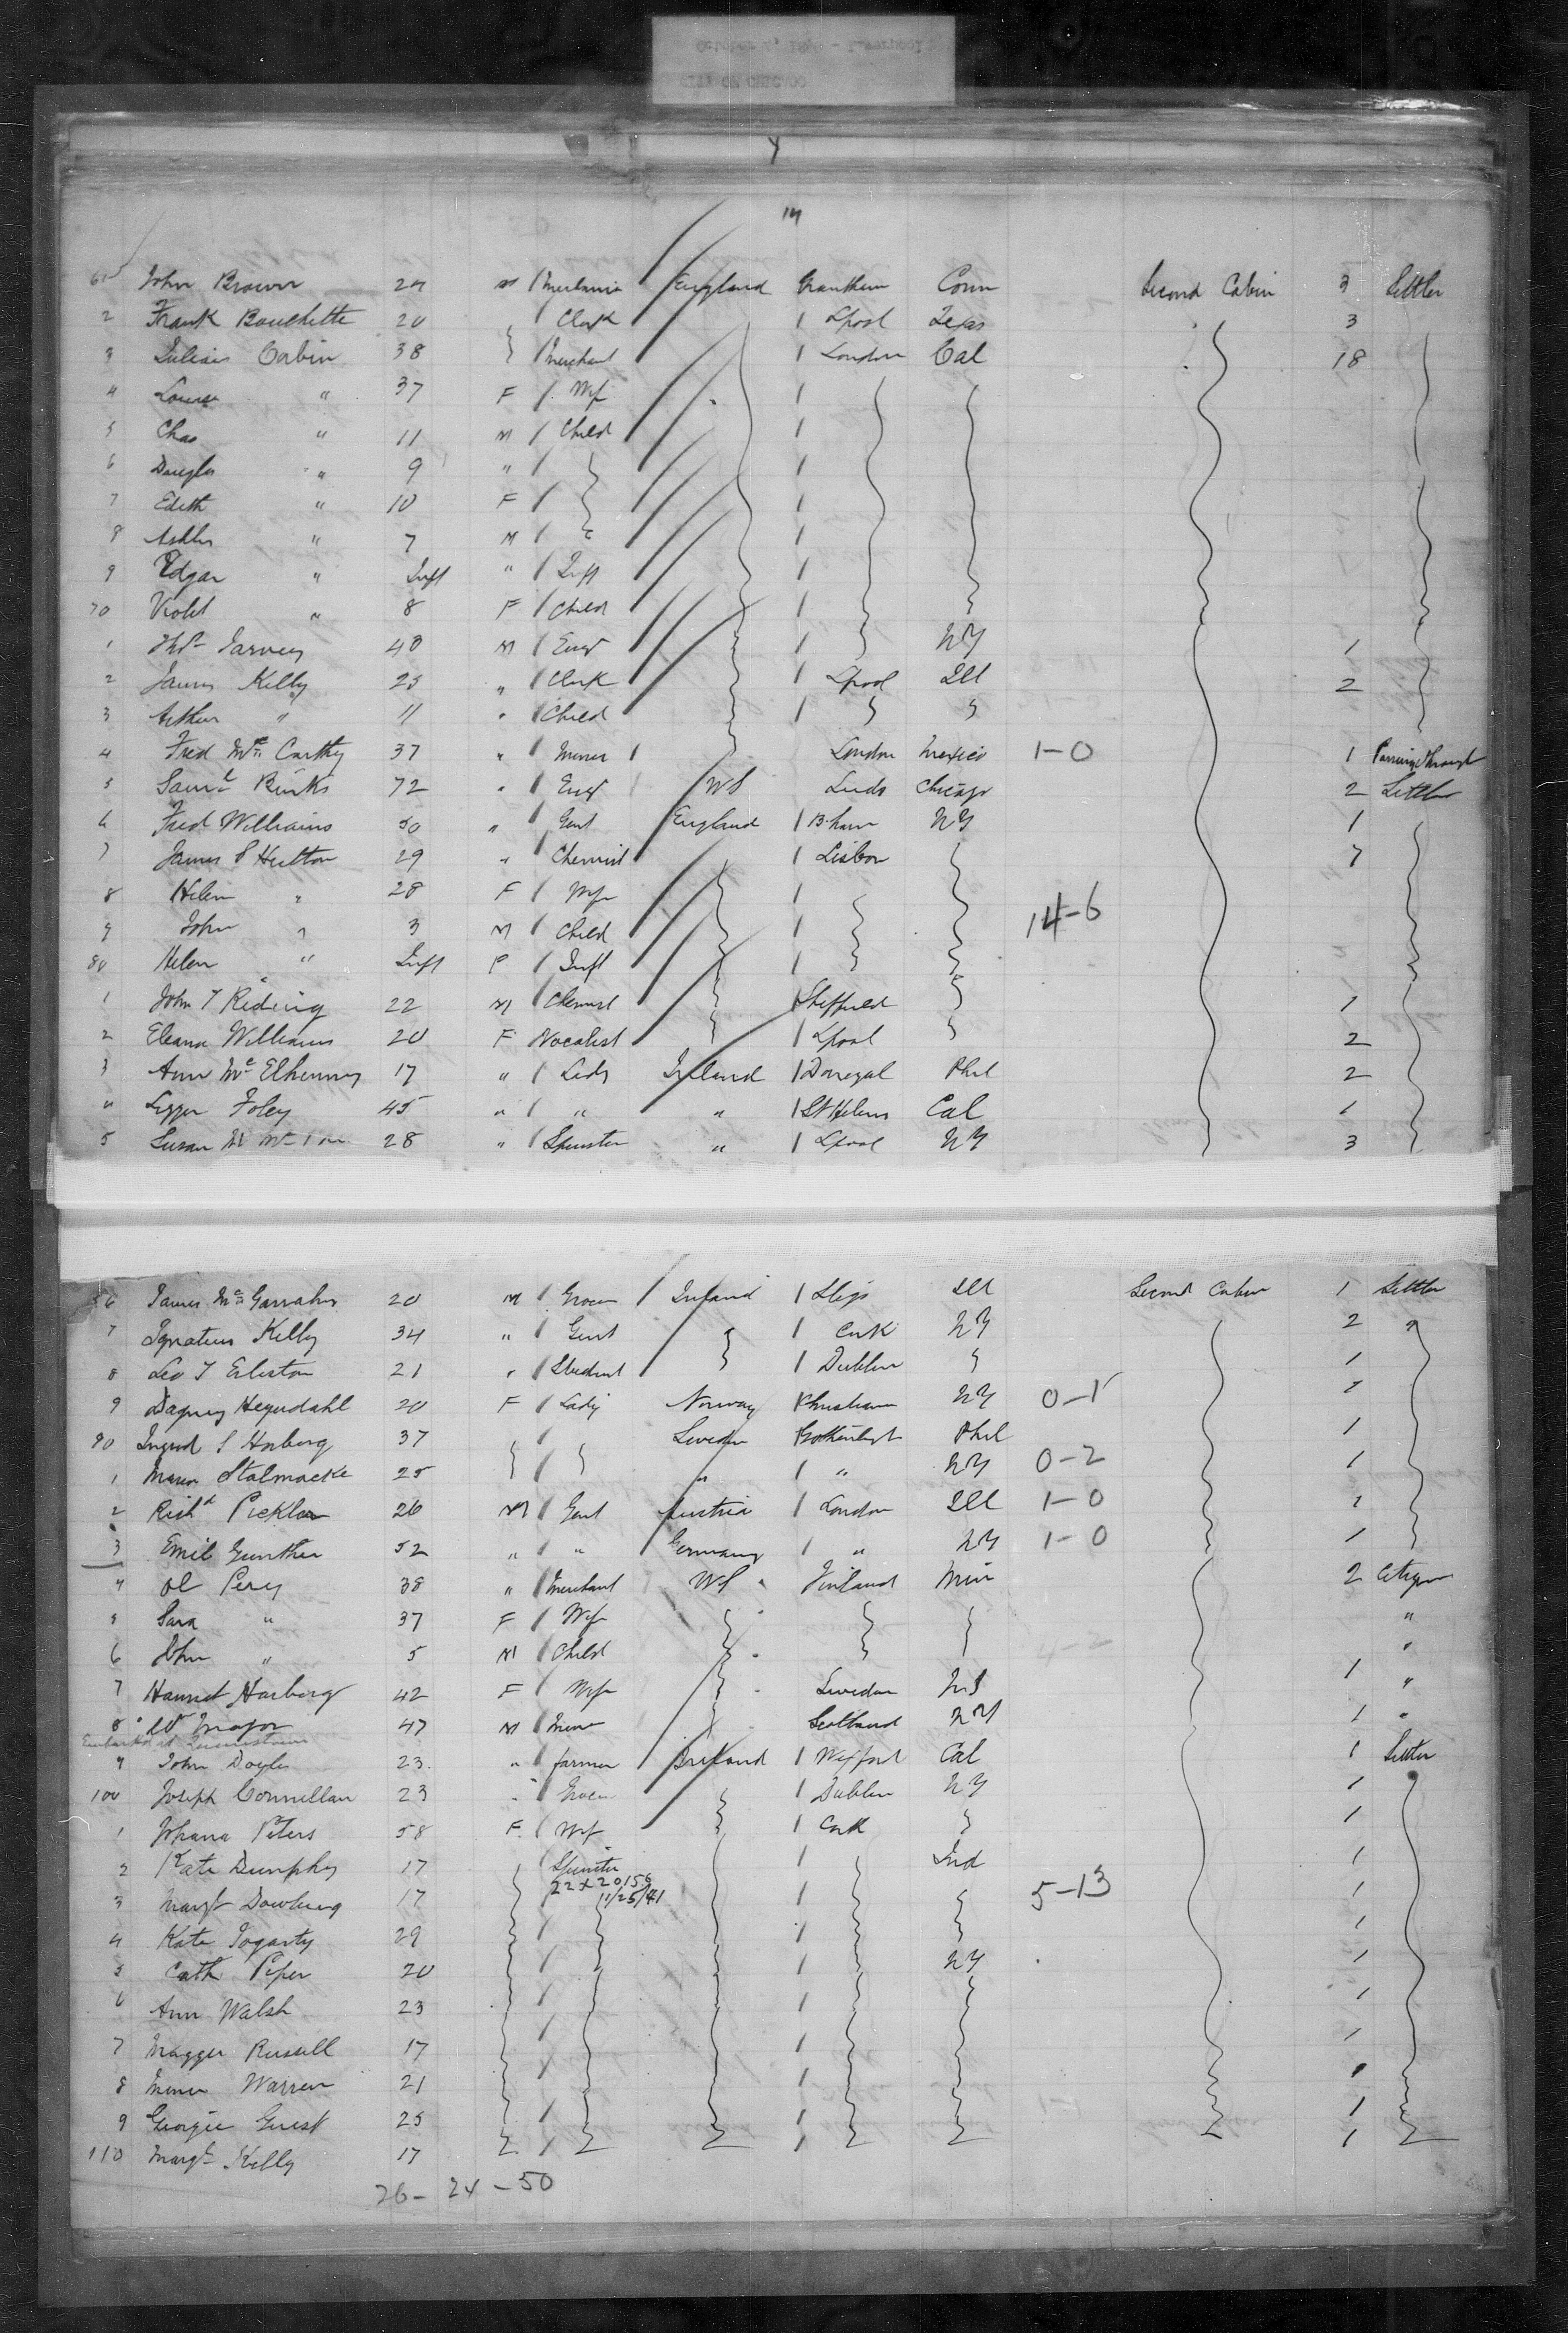 14
John Brown 24 M England Conn Second Cabin 3 Settler
2 Frank Bouchette 20 Clerk Lpool Texas 3
3 Corbin 38 Merchant London Cal 18
4 Louise " 37 F Wife
5 Chas " 11 M Child
6 Douglas " 9 "
7 Edith " 10 F
8 " 7 M
9 Edgar " Inft " Inft
70 Violet " 8 F Child
1 Thos Jarvey 40 M Engr NY 1
2 James Kelly 25 " Clerk Lpool Ill 2
3 Arthur " 11 " Child
4 Fred McCarthy 37 " Miner London Mexico 1-0 1 Passing through
5 Saml Binks 72 " Engr US Leeds Chicago 2 Settler
6 Fred Williams 50 " Gent England B.ham NY 1
7 James S Hutton 29 " Chemist Lisbon 7
8 Helen " 28 F Wife
14-6
9 John " 3 M Child
80 Helen " Inft F Inft
1 John T Riding 22 M Chemist Sheffield 1
2 Eleana Williams 20 F Vocalist Lpool 2
3 Ann McElhenny 17 " Lady Ireland Donegal Phil 2
4 Foley 45 " " " St Helens Cal 1
5 Susan 28 " Spinster " Lpool NY 3
86 James McGarrahn 20 M Grocer Ireland Sligo Ill Second Cabin 1 Settler
7 Ignatius Kelly 34 " Gent Cork NY 2 "
8 Leo T 21 " Student Dublin 1
9 Dagny Heyerdahl 20 F Lady Norway NY 0-1 1
90 Ingrid S Horberg 37 Sweden Phil 1
1 25 " " NY 0-2 1
2 Richd Pickler 26 M Gent Austria London Ill 1-0 1
3 Emil Gunther 52 " " Germany " NY 1-0 1
4 Ol Pery 38 " Merchant US Finland Min 2 Citizen
5 Sara " 37 F Wife "
6 John " 5 M Child "
7 Horberg 42 F Wife Sweden 1 "
8 Wm Major 47 M Miner Scotland NY 1 "
Embarked at Queenstown
9 John Doyle 23 " farmer Ireland Wexford Cal 1 Settler
100 Joseph Connellan 23 " Grocer Dublin NY 1
1 Johana Peters 58 F Wife Cork 1
2 Kate Dunphy 17 Spinster Ind 1
22 X 20156
11/25/41
3 Margt Dowling 17 5-13 1
4 Kate Fogarty 29 1
5 Cath Piper 20 NY 1
6 Ann Walsh 23 1
7 Maggie Russell 17 1
8 Warren 21 1
9 Georgie Guest 25 1
110 Margt Kelly 17 1
26 - 24 - 50